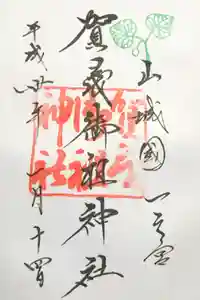 山城國一之宮
賀茂御祖神社
平成廿年一月十四日
賀茂
御祖
神社